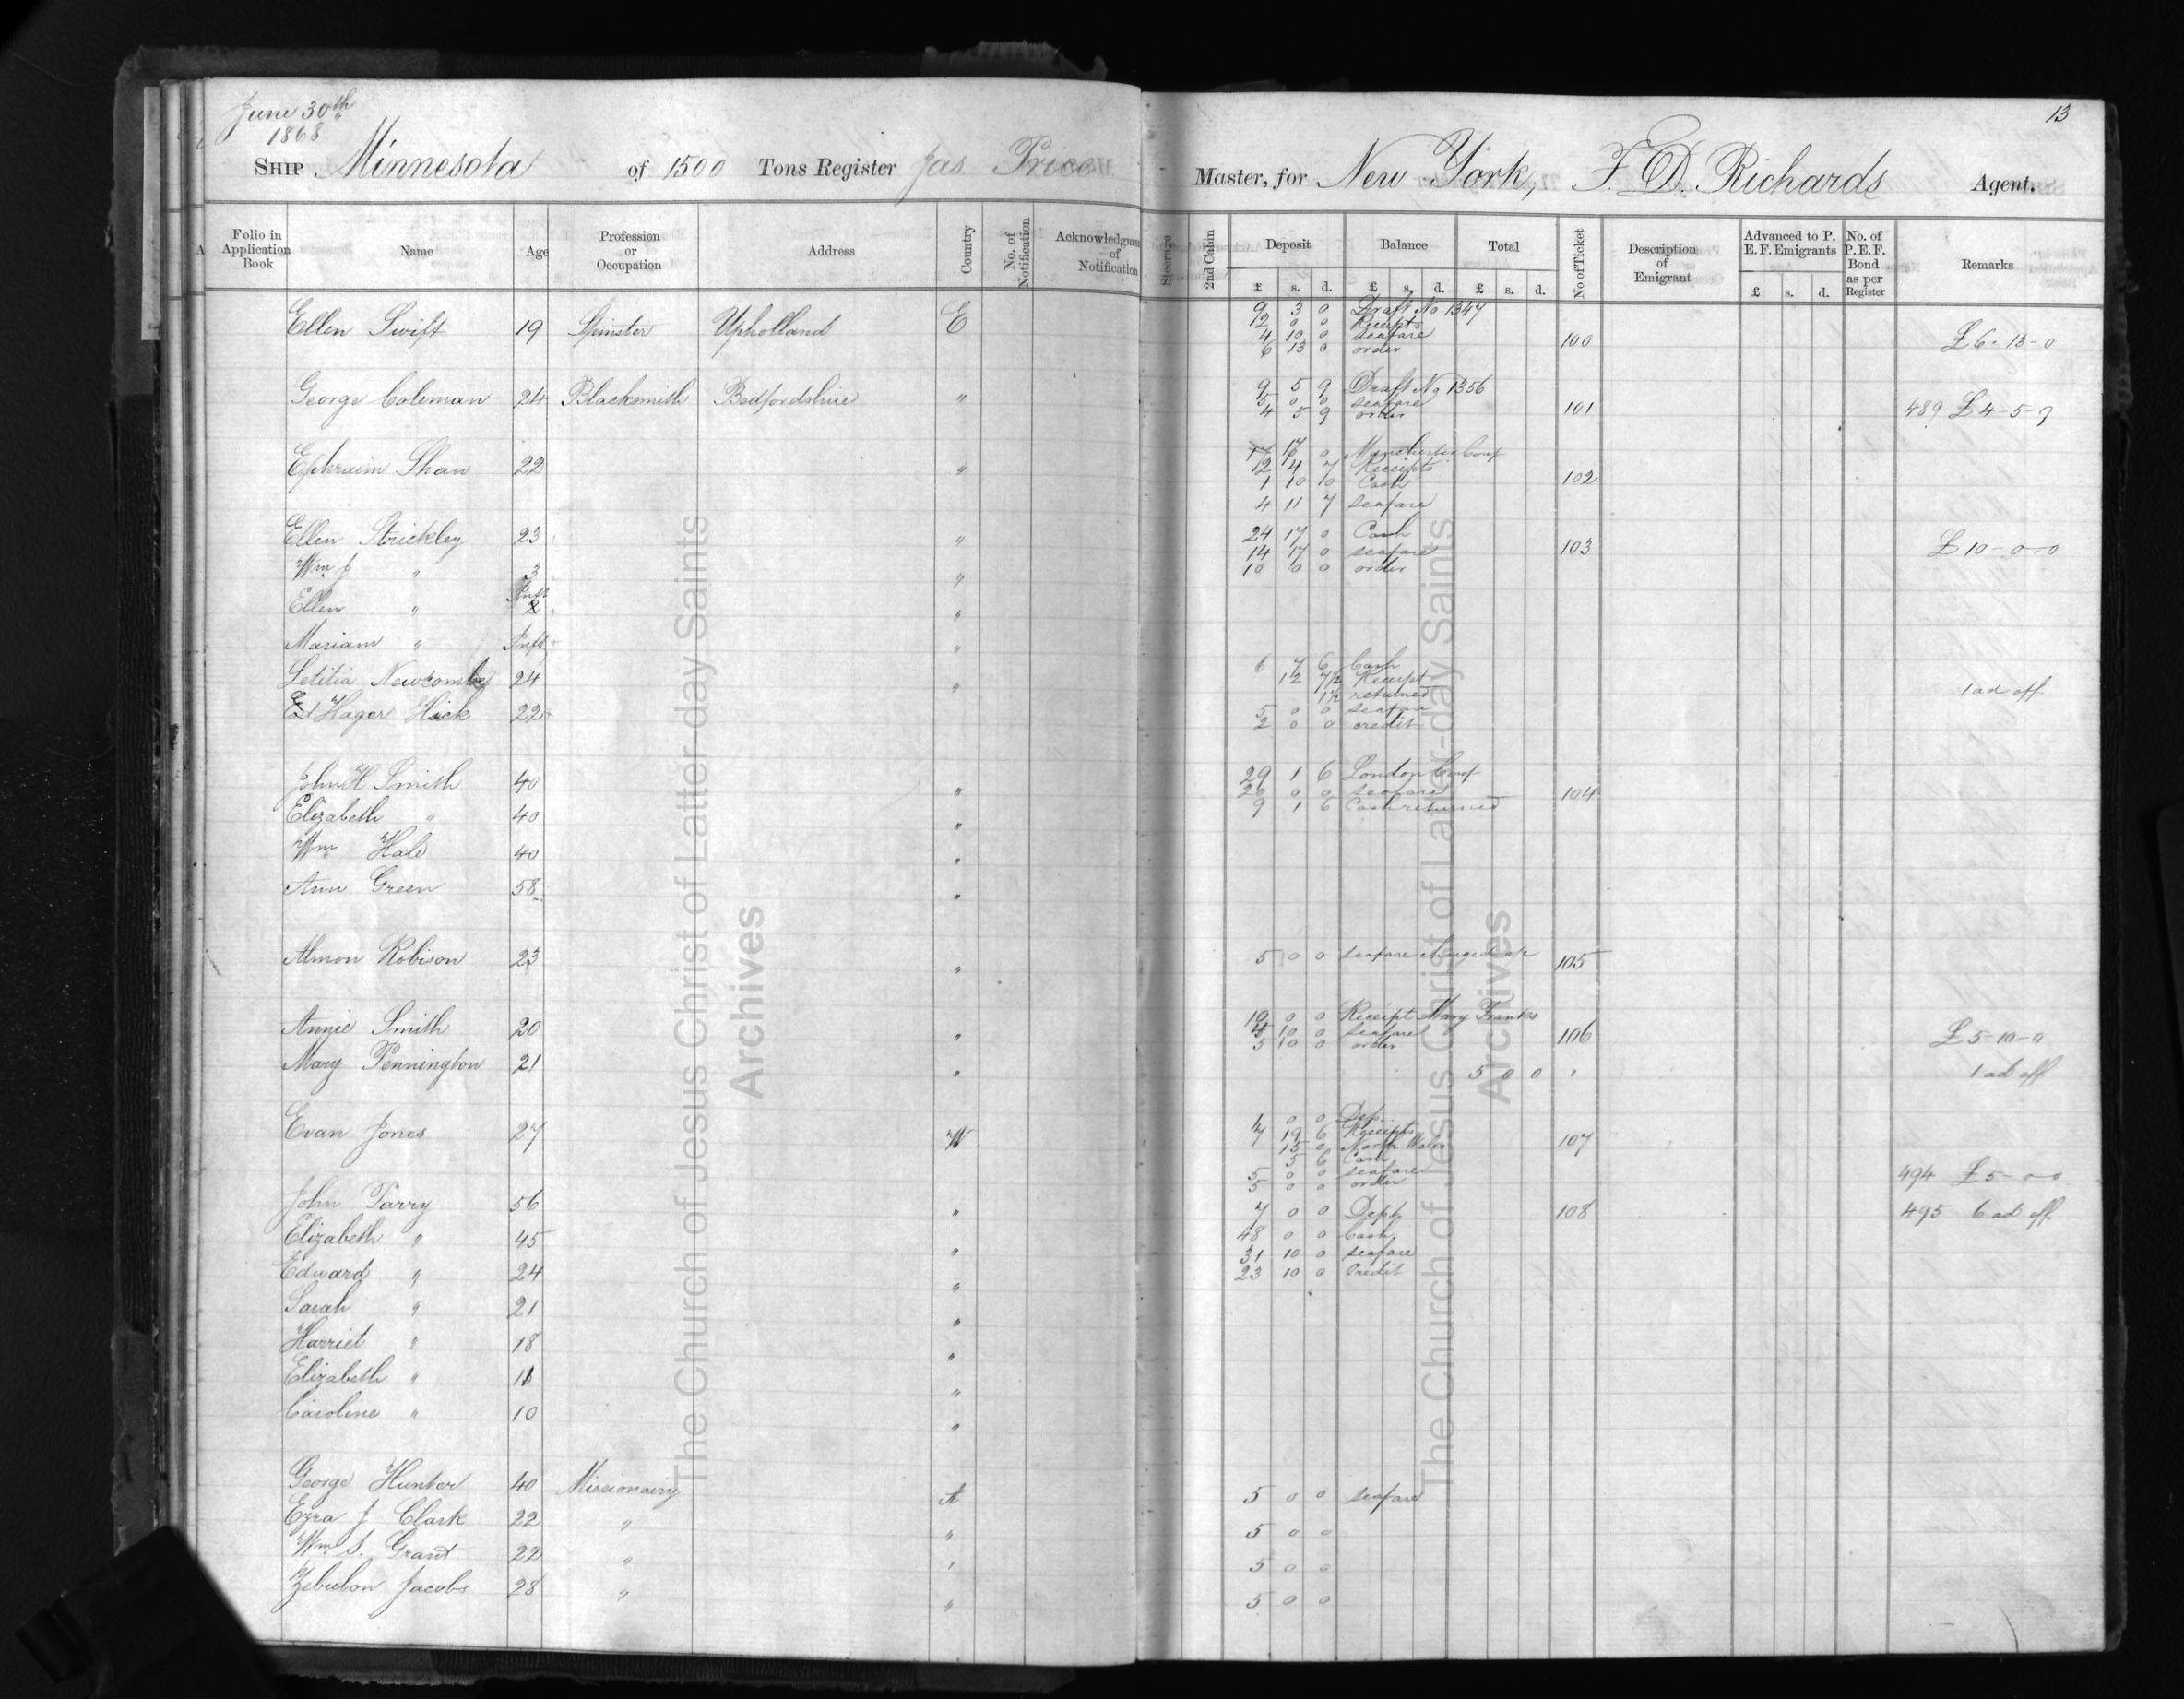 June 30th
1868
13
SHIP Minnesota of 1500 Tons Register Jas Price Master, for New York, F. D. Richards Agent.
Folio in Application Book Name Age Profession or Occupation Address Country No. of Notification Acknowledgment of Notification Steerage 2nd Cabin Deposit Balance Total No of Ticket Description of Emigrant Advanced to P. E. F. Emigrants No. of P.E.F. Bond as per Register Remarks
£ s. d. £ s. d. £ s. d. £ s. d.
9 3 0 Draft No 1347
Ellen Swift 19 Spinster Upholland E 12 0 0 Receipts
4 10 0 seafare 100 £6-13-0
6 13 0 order
9 5 9 Draft No 1356
George Coleman 24 Blacksmith Bedfordshire " 5 0 0 seafare
4 5 9 order 101 489 £4-5-9
17 0 Manchester Conf
Ephraim Shaw 22 " 12 4 7 Receipts
1 10 0 Cash 102
4 11 7 seafare
Ellen Strickley 23 " 24 17 0 Cash
14 17 0 seafare 103 £10-0-0
Wm J " 3 " 10 0 0 order
Ellen " Inft "
Mariam " Inft "
6 7 6 Cash
Letitia Newcombe 24 " 12 7½ Receipt
1½ returned 1 ad off
Hager Hick 22 5 0 0 seafare
2 0 0 credit
John H Smith 40 " 29 1 6 London Conf
20 0 0 seafare 104
Elizabeth " 40 " 9 1 6 Cash returned
Wm Hale 40 "
Ann Green 58 "
Almon Robison 23 " 5 0 0 seafare charged a/c 105
10 0 0 Receipt Mary Franks
Annie Smith 20 " 4 10 0 seafare 106 £5-10-0
5 10 0 order
Mary Pennington 21 " 5 0 0 " 1 ad off
0 0 Dep.
Evan Jones 27 W 7 19 6 Receipts 107
15 0 North Wales
5 6 Cash
5 0 0 seafare 494 £5-0-0
5 0 0 order
John Parry 56 " 7 0 0 Dept 108 495 6 ad off
Elizabeth " 45 " 48 0 0 Cash
Edward " 24 " 31 10 0 seafare
23 10 0 Credit
Sarah " 21 "
Harriet " 18 "
Elizabeth " 11 "
Caroline " 10 "
George Hunter 40 Missionairy A 5 0 0 seafare
Ezra J Clark 22 " " 5 0 0
Wm S. Grant 22 " " 5 0 0
Zebulon Jacobs 28 " " 5 0 0
The Church of Jesus Christ of Latter-day Saints
Archives
The Church of Jesus Christ of Latter-day Saints
Archives